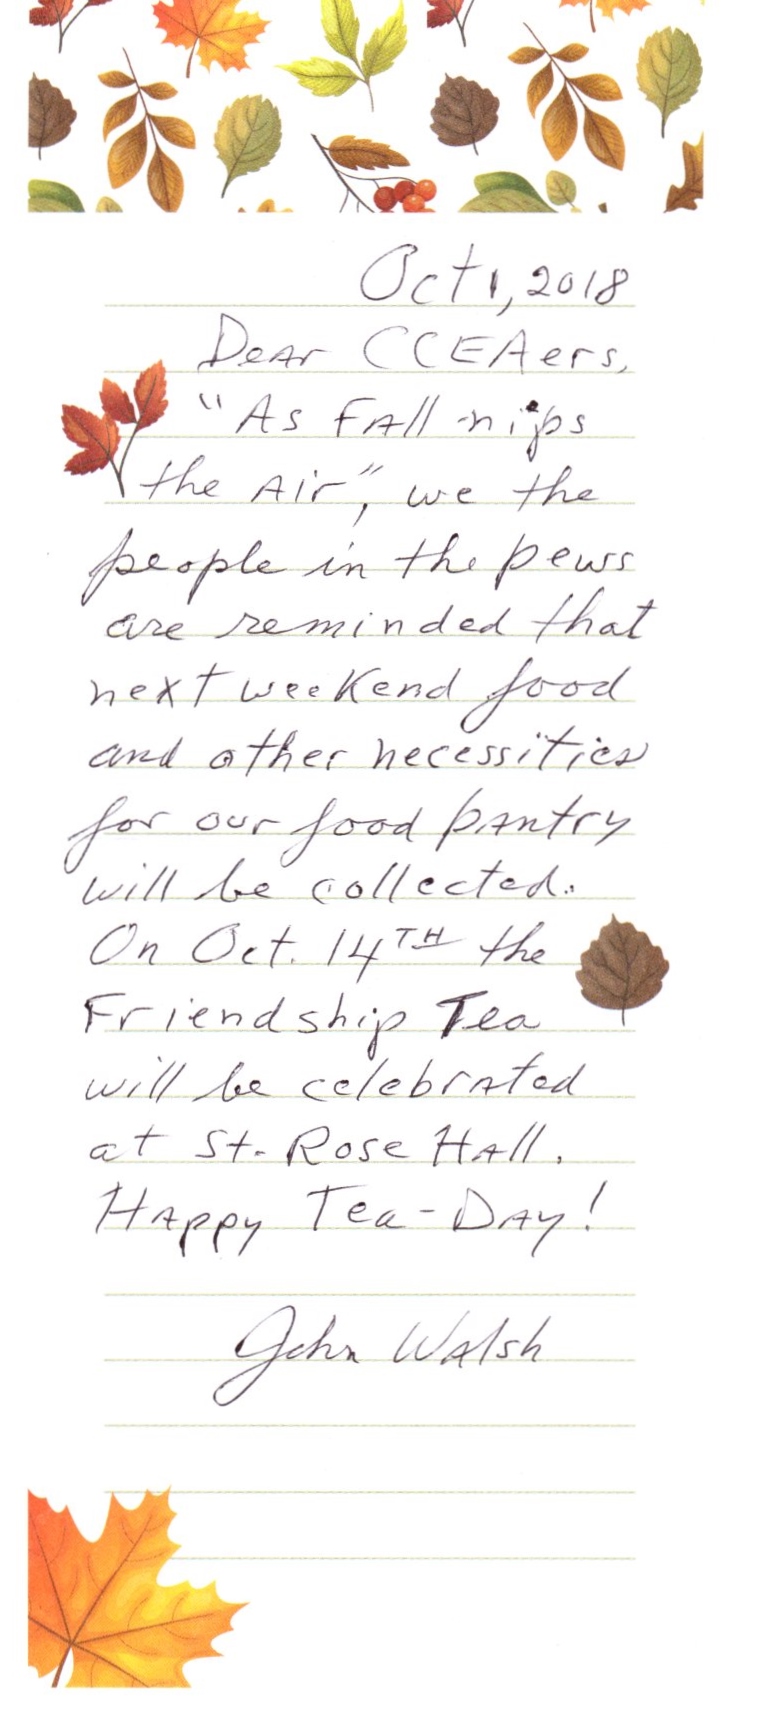 Oct 1, 2018
Dear CCEAers,
"As Fall nips
the Air", we the
people in the pews
are reminded that
next weekend food
and other necessities
for our food pantry
will be collected.
On Oct. 14TH the
Friendship Tea
will be celebrated
at St. Rose Hall.
Happy Tea-Day!
John Walsh